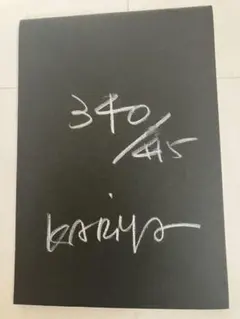 340
/445
KARiYA